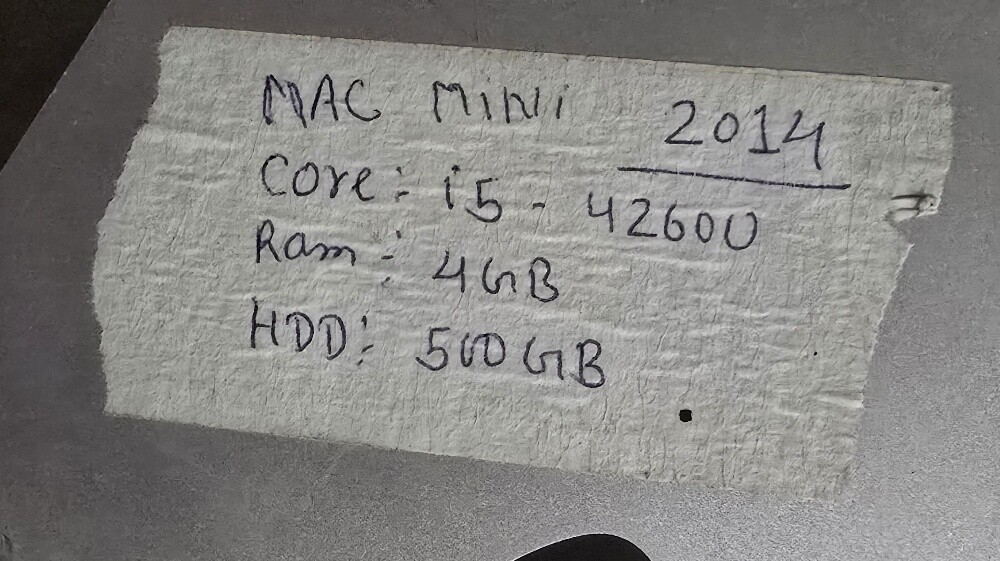 MAC MiNi 2014
Core: i5 - 4260U
Ram: 4GB
HDD: 500GB